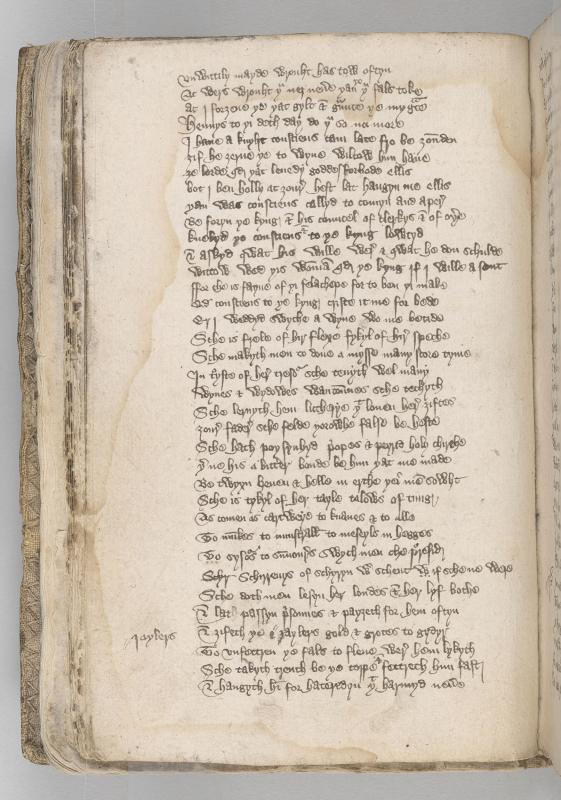 Vnwittily mayde wrouht has tow oftyn
At wers wrouht yu neu neue yan yu fals toke
at I forzeue ye yat gylt & gnte ye my gce
Hennys to yi deth day do yu so na more
I haue a knyht consciens cam late fro be zonden
zif he zerne ye to wyue wiltow him haue
ze lorde qd yat leuedy goddes forbode ellis
bot i ben holly at zour hest lat hangyn me ellis
yan was consciens callyd to comyn and aper
Be foryn ye kyng & his councel of clerkys & of oye
knelyd yo consciens to ye kyng lowtyd
& askyd qwat his wille wer & qwat he don schulde
wittow wed yis woman qd ye kyng if i wille a sent
ffor che is fayne of yi felachepe for to ben yi make
qd consciens to ye kyng criste it me for bede
Er i weddyd swyche a wyue wo me betide
Sche is frele of hir flesc fykyl of hir speche
Sche makyth men to done a mysse many score tyme
In tryste of her tresor sche tenyth wel many
wyues & wydowes wantounnes sche techyth
Sche lernyth hem litcherye yt louen her ziftes
zour fader sche felde yorowhe false be heste
Sche hath poysynbyd popes & peyryd holy chirche
yr ne his a bitter boude be him yat me made
Be twyyn heuen & helle in erthe yei me sowht
Sche is tykyl of her tayle talows of tung
As comen as cartweye to knaues & to alle
To mukes to munstrall to meseyls in hegges
To sysors to sumnors swych men che preysid
Schir Schirreuys of schyryn wer schent if scheme were
Sche doth men lesyn her londes & her lyf bothe
& lat passyn prisonnes & payzeth for hem oftyn
& zifeth ye Jaylers gold & grotes to gydyr
To vnfettren ye fals to flene wer hem lykyth
Sche takyth trewth be ye toppe fettreth him fast
& hangyth him for hateredyn yt harmyd neue
Jaylers